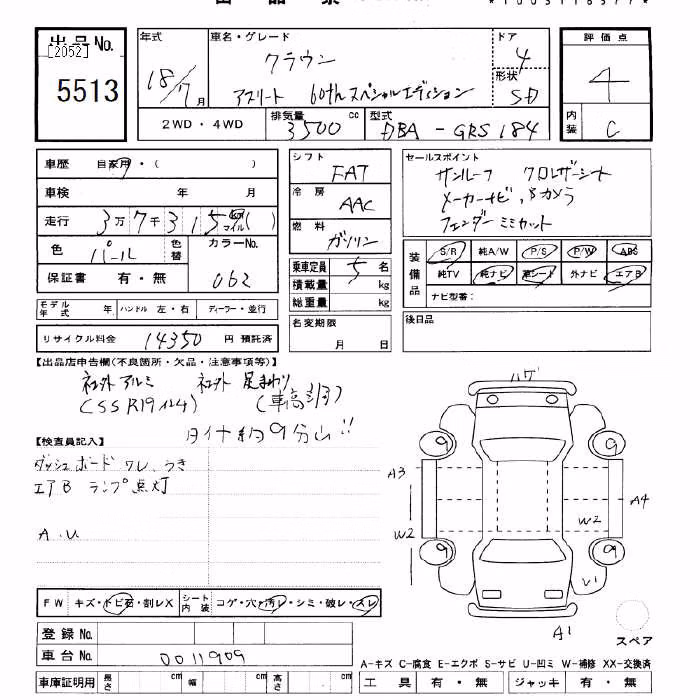 出品No.
[2052]
5513
年式
18/7月
車名・グレード
クラウン
アスリート 60thスペシャルエディション
ドア
4
形状
SD
評価点
4
内装
C
2WD・4WD
排気量
3500 cc
型式
DBA-GRS184
車歴 自家用・( )
車検 年 月
走行 3万7千315 km マイル ( )
色 パール
色替
カラーNo.
062
保証書 有・無
モデル年式 年
ハンドル 左・右
ディーラー・並行
リサイクル料金 14350 円 預託済
シフト
FAT
冷房
AAC
燃料
ガソリン
乗車定員 5 名
積載量 kg
総重量 kg
名変期限
月 日
セールスポイント
サンルーフ クロレザーシート
メーカーナビ、Bカメラ
フェンダーミミカット
装備品
S/R 純A/W P/S P/W ABS
純TV 純ナビ 革シート 外ナビ エアB
ナビ型番:
後日品
【出品店申告欄(不良箇所・欠品・注意事項等)】
社外アルミ 社外 足まわり
(SSR19インチ) (車高調)
タイヤ約9分山!!
【検査員記入】
ダッシュボード ワレ、うき
エアB ランプ点灯
A.U
ハゲ
9
9
A3
A4
W2
W2
9
9
V1
A1
スペア
FW キズ・トビ石・割レX
シート内装 コゲ・穴・汚レ・シミ・破レ・スレ
登録No.
車台No. 0011909
車庫証明用 長さ cm 幅 cm 高さ cm
A-キズ C-腐食 E-エクボ S-サビ U-凹ミ W-補修 XX-交換済
工具 有・無 ジャッキ 有・無